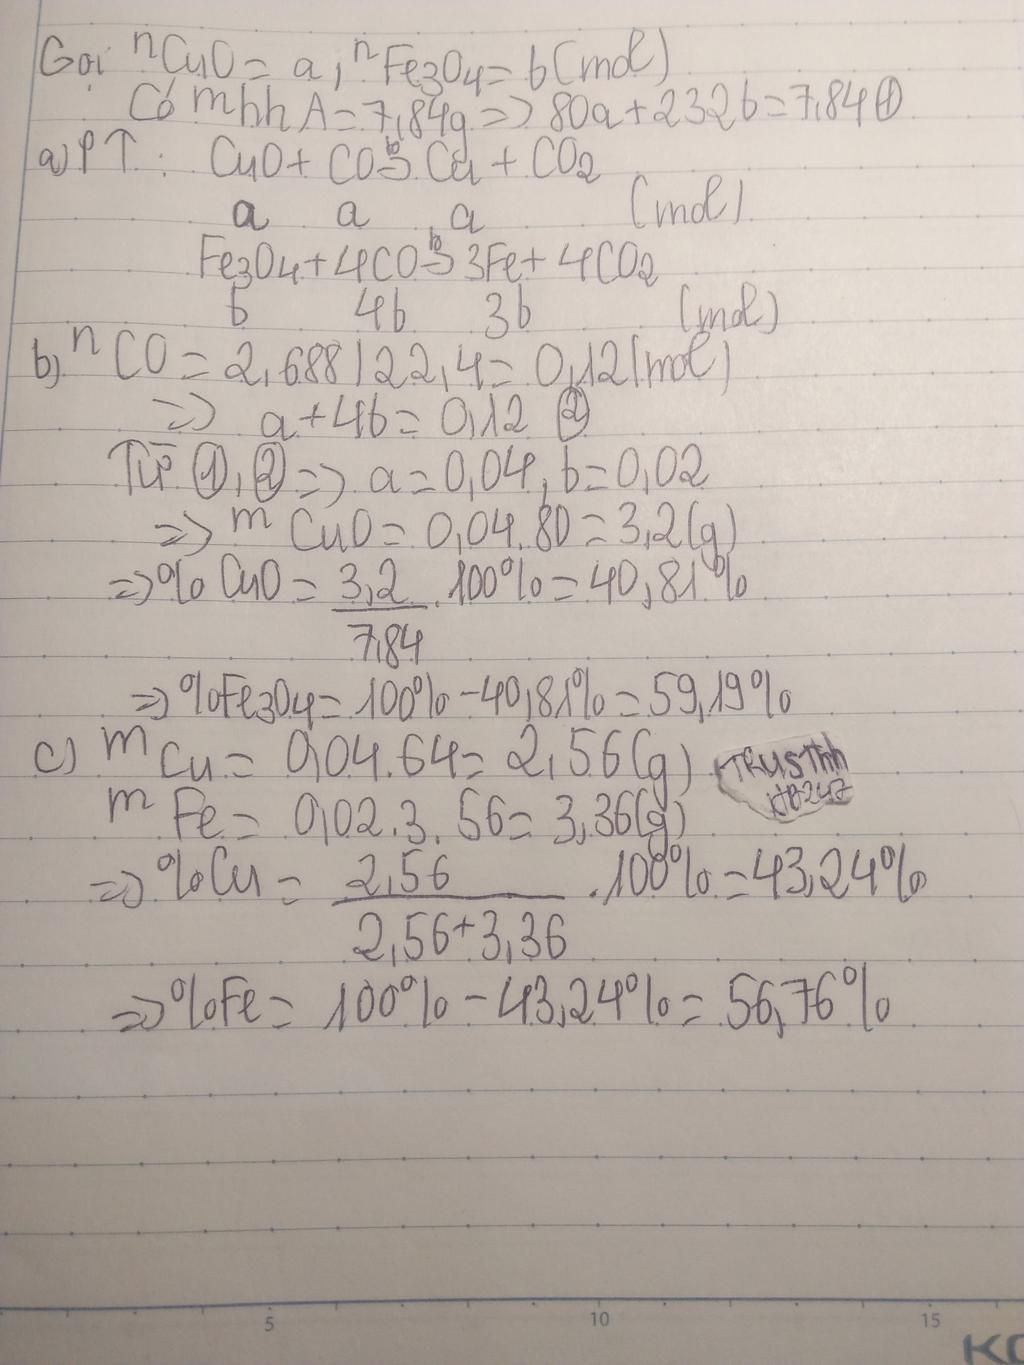 Gọi nCuO = a, nFe3O4 = b (mol)
Có mhh A = 7,84g => 80a + 232b = 7,84 ①
a) PT : CuO + CO →(to) Cu + CO2
a a a (mol)
Fe3O4 + 4CO →(to) 3Fe + 4CO2
b 4b 3b (mol)
b) nCO = 2,688 / 22,4 = 0,12 (mol)
=> a + 4b = 0,12 ②
Từ ①, ② => a = 0,04, b = 0,02
=> mCuO = 0,04.80 = 3,2 (g)
=> % CuO = 3,2 / 7,84 . 100% = 40,81%
=> %Fe3O4 = 100% - 40,81% = 59,19%
c) mCu = 0,04.64 = 2,56 (g)
mFe = 0,02.3.56 = 3,36 (g)
=> %Cu = 2,56 / 2,56 + 3,36 . 100% = 43,24%
=> %Fe = 100% - 43,24% = 56,76%
5 10 15